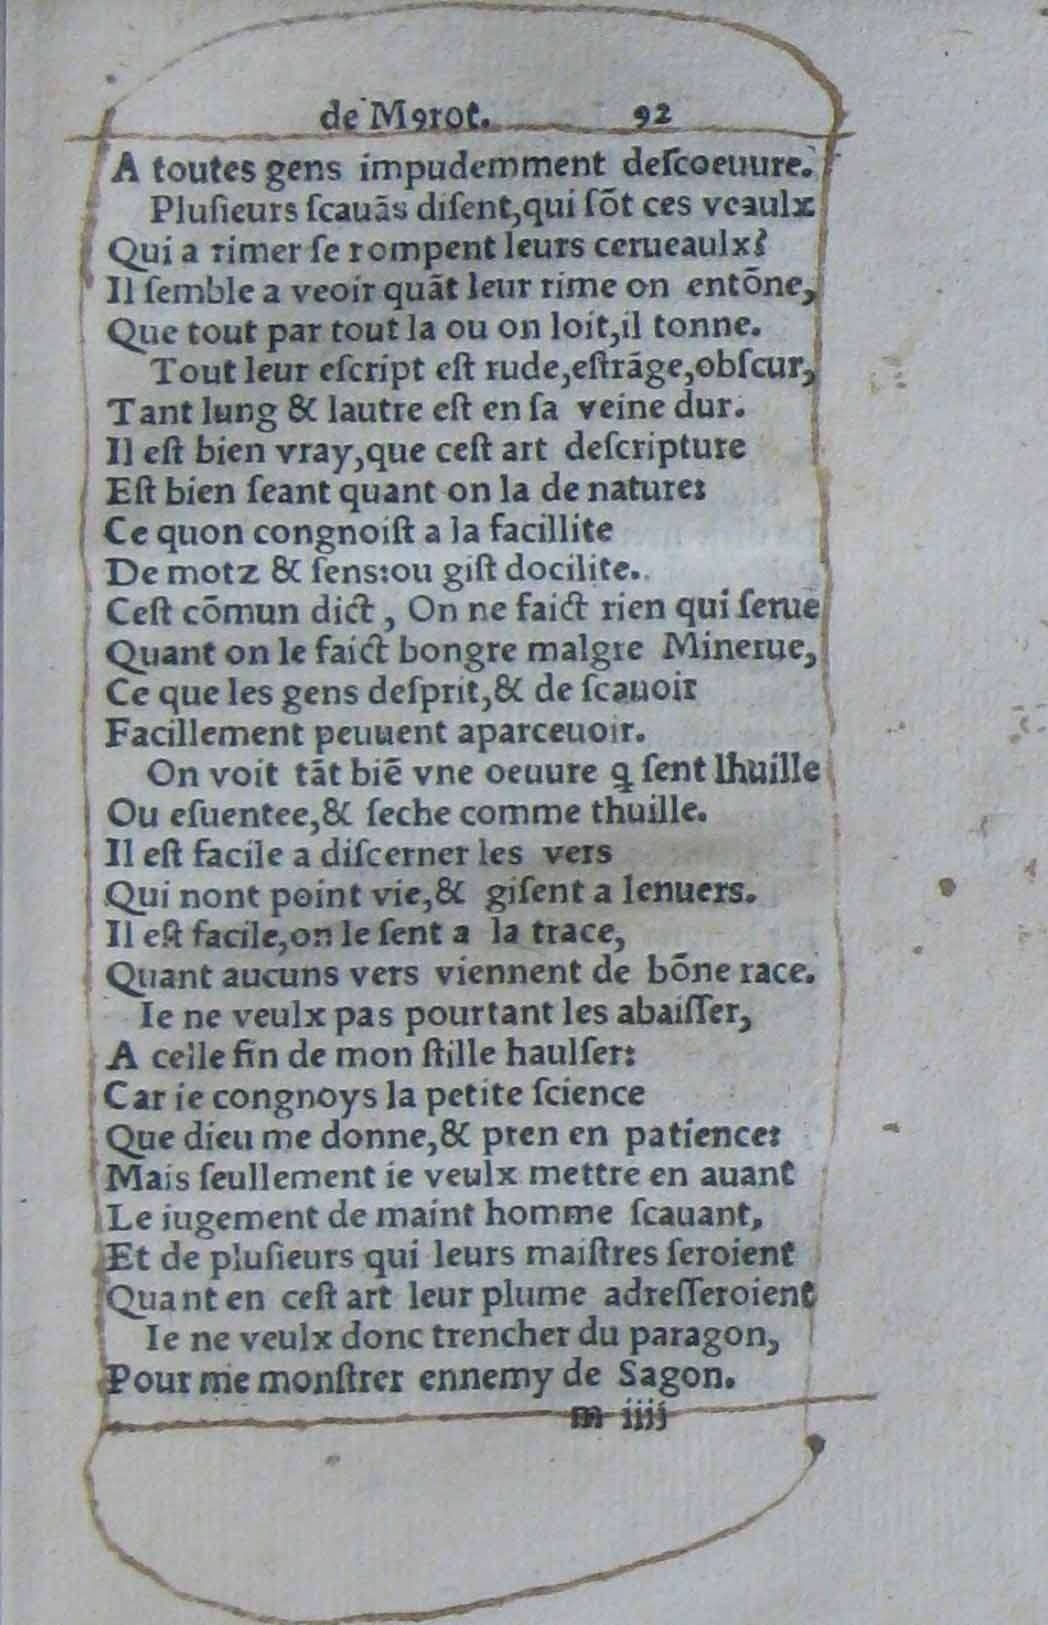 de M9rot. 92
A toutes gens impudemment deſcoeuure.
Pluſieurs ſcauãs diſent,qui ſõt ces veaulx
Qui a rimer ſe rompent leurs cerueaulx?
Il ſemble a veoir quãt leur rime on entõne,
Que tout par tout la ou on loit,il tonne.
Tout leur eſcript eſt rude,eſtrãge,obſcur,
Tant lung & lautre eſt en ſa veine dur.
Il eſt bien vray,que ceſt art deſcripture
Eſt bien ſeant quant on la de nature:
Ce quon congnoiſt a la facillite
De motz & ſens:ou giſt docilite.
Ceſt cõmun dict, On ne faict rien qui ſerue
Quant on le faict bongre malgre Minerue,
Ce que les gens deſprit,& de ſcauoir
Facillement peuuent aparceuoir.
On voit tãt biẽ vne oeuure q̃ ſent lhuille
Ou eſuentee,& ſeche comme thuille.
Il eſt facile a diſcerner les vers
Qui nont point vie,& giſent a lenuers.
Il eſt facile,on le ſent a la trace,
Quant aucuns vers viennent de bõne race.
Ie ne veulx pas pourtant les abaiſſer,
A celle fin de mon ſtille haulſer:
Car ie congnoys la petite ſcience
Que dieu me donne,& pren en patience:
Mais ſeullement ie veulx mettre en auant
Le iugement de maint homme ſcauant,
Et de pluſieurs qui leurs maiſtres ſeroient
Quant en ceſt art leur plume adreſſeroient
Ie ne veulx donc trencher du paragon,
Pour me monſtrer ennemy de Sagon.
m iiij